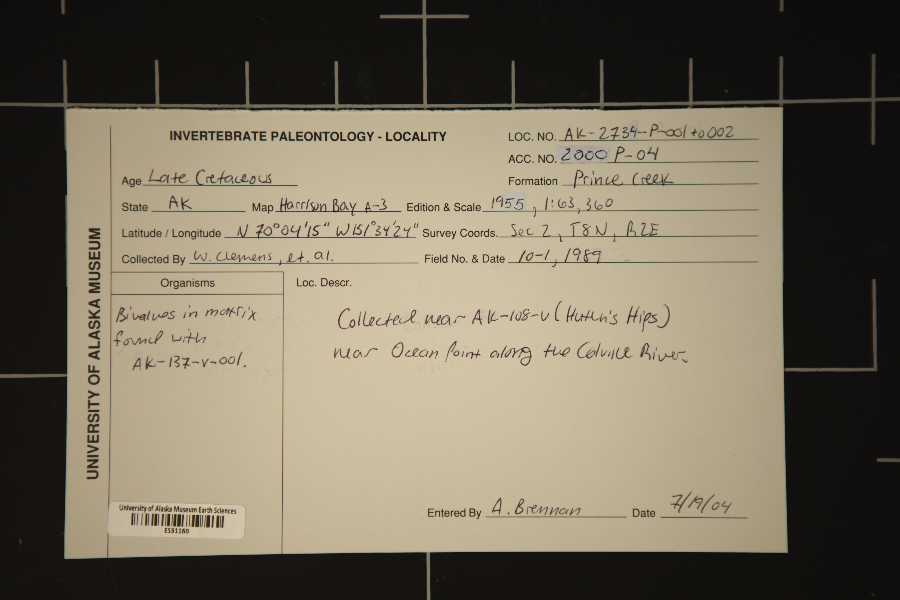 INVERTEBRATE PALEONTOLOGY - LOCALITY
LOC. NO. AK-2734-P-001 to 002
ACC. NO. 2000 P-04
Age Late Cretaceous
Formation Prince Creek
State AK Map Harrison Bay A-3 Edition & Scale 1955, 1:63,360
Latitude / Longitude N 70°04'15" W151°34'24" Survey Coords. Sec 2, T8N, R2E
Collected By W. Clemens, et. al. Field No. & Date 10-1, 1989
Organisms
Loc. Descr.
Bivalves in matrix
found with
AK-137-V-001.
Collected near AK-108-V (Hutch's Hips)
near Ocean Point along the Colville River.
UNIVERSITY OF ALASKA MUSEUM
University of Alaska Museum Earth Sciences
ES31160
Entered By A. Brennan Date 7/19/04